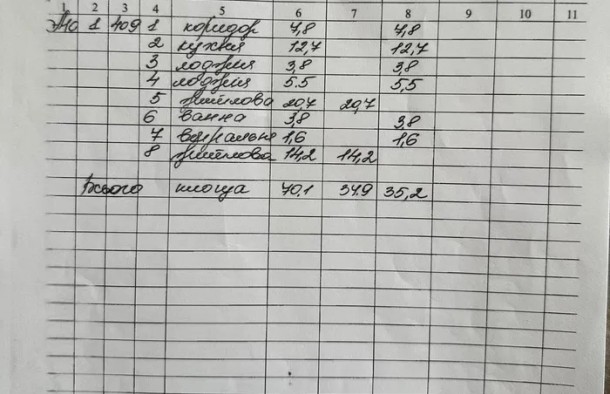 1 2 3 4 5 6 7 8 9 10 11
1 409 1 коридор 7,8 7,8
2 кухня 12,7 12,7
3 лоджия 3,8 3,8
4 лоджия 5.5 5,5
5 житлова 20,7 20,7
6 ванна 3,8 3,8
7 вбиральня 1,6 1,6
8 житлова 14,2 14,2
Всього площа 70.1 34.9 35,2